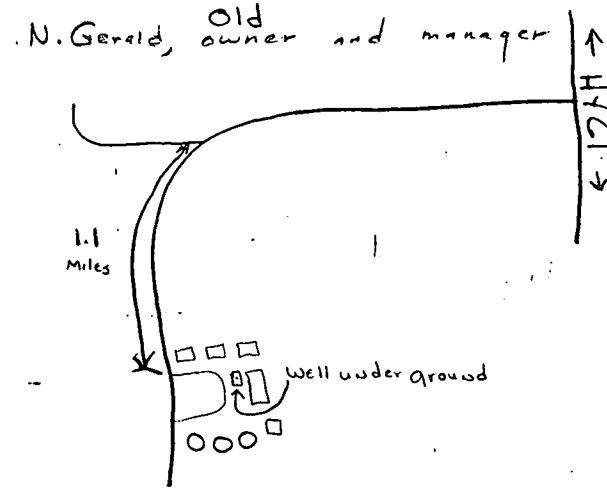 Old
N. Gerald, owner and manager
1.1
Miles
Well under ground